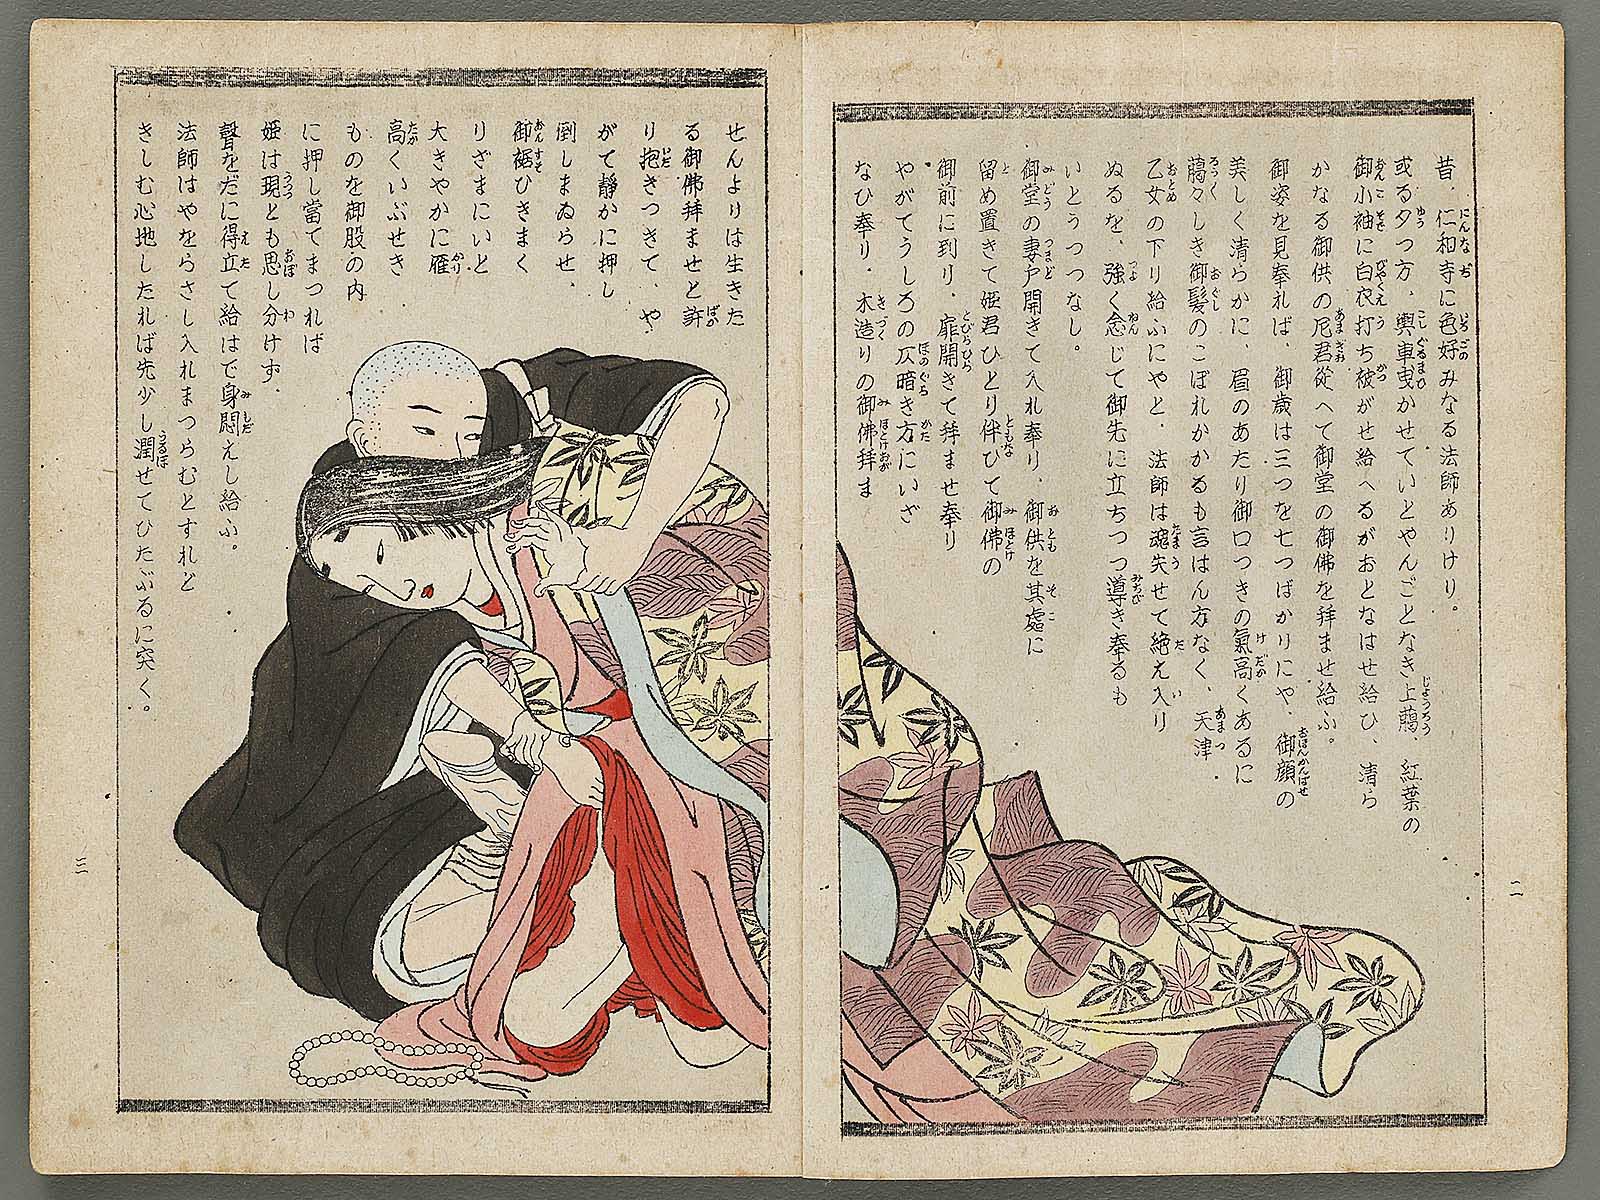 昔、仁和寺に色好みなる法師ありけり。
或る夕つ方、輿車曳かせていとやんごとなき上﨟、紅葉の
御小袖に白衣打ち被がせ給へるがおとなはせ給ひ、清ら
かなる御供の尼君従へて御堂の御佛を拝ませ給ふ。
御姿を見奉れば、御歳は三つを七つばかりにや、御顔の
美しく清らかに、眉のあたり御口つきの氣高くあるに
﨟々しき御髪のこぼれかかるも言はん方なく、天津
乙女の下り給ふにやと、法師は魂失せて絶え入り
ぬるを、強く念じて御先に立ちつつ導き奉るも
いとうつつなし。
御堂の妻戸開きて入れ奉り、御供を其處に
留め置きて姫君ひとり伴ひて御佛の
御前に到り、扉開きて拝ませ奉り
やがてうしろの仄暗き方にいざ
なひ奉り、木造りの御佛拝ま
せんよりは生きた
る御佛拝ませと許
り抱きつきて、や
がて静かに押し
倒しまゐらせ、
御裾ひきまく
りざまにいと
大きやかに雁
高くいぶせき
ものを御股の内
に押し當てまつれば
姫は現とも思し分けず、
聲をだに得立て給はで身悶えし給ふ。
法師はやをらさし入れまつらむとすれど
きしむ心地したれば先少し潤せてひたぶるに突く。
二
三